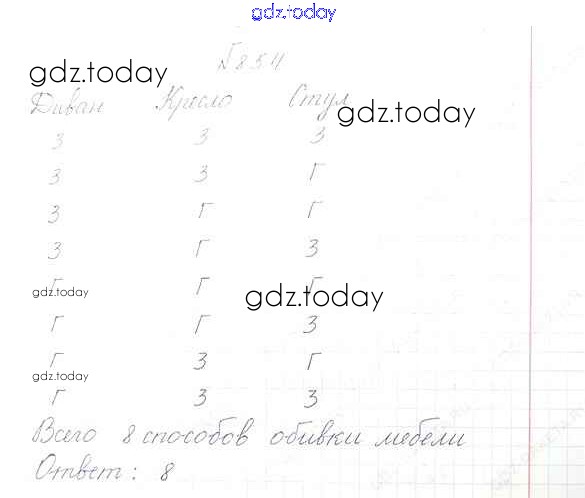 gdz.today
№854
gdz.today
Диван Кресло Стул
gdz.today
З З З
З З Г
З Г Г
З Г З
Г Г Г
gdz.today
gdz.today
Г Г З
Г З Г
gdz.today
Г З З
Всего 8 способов обивки мебели
Ответ: 8